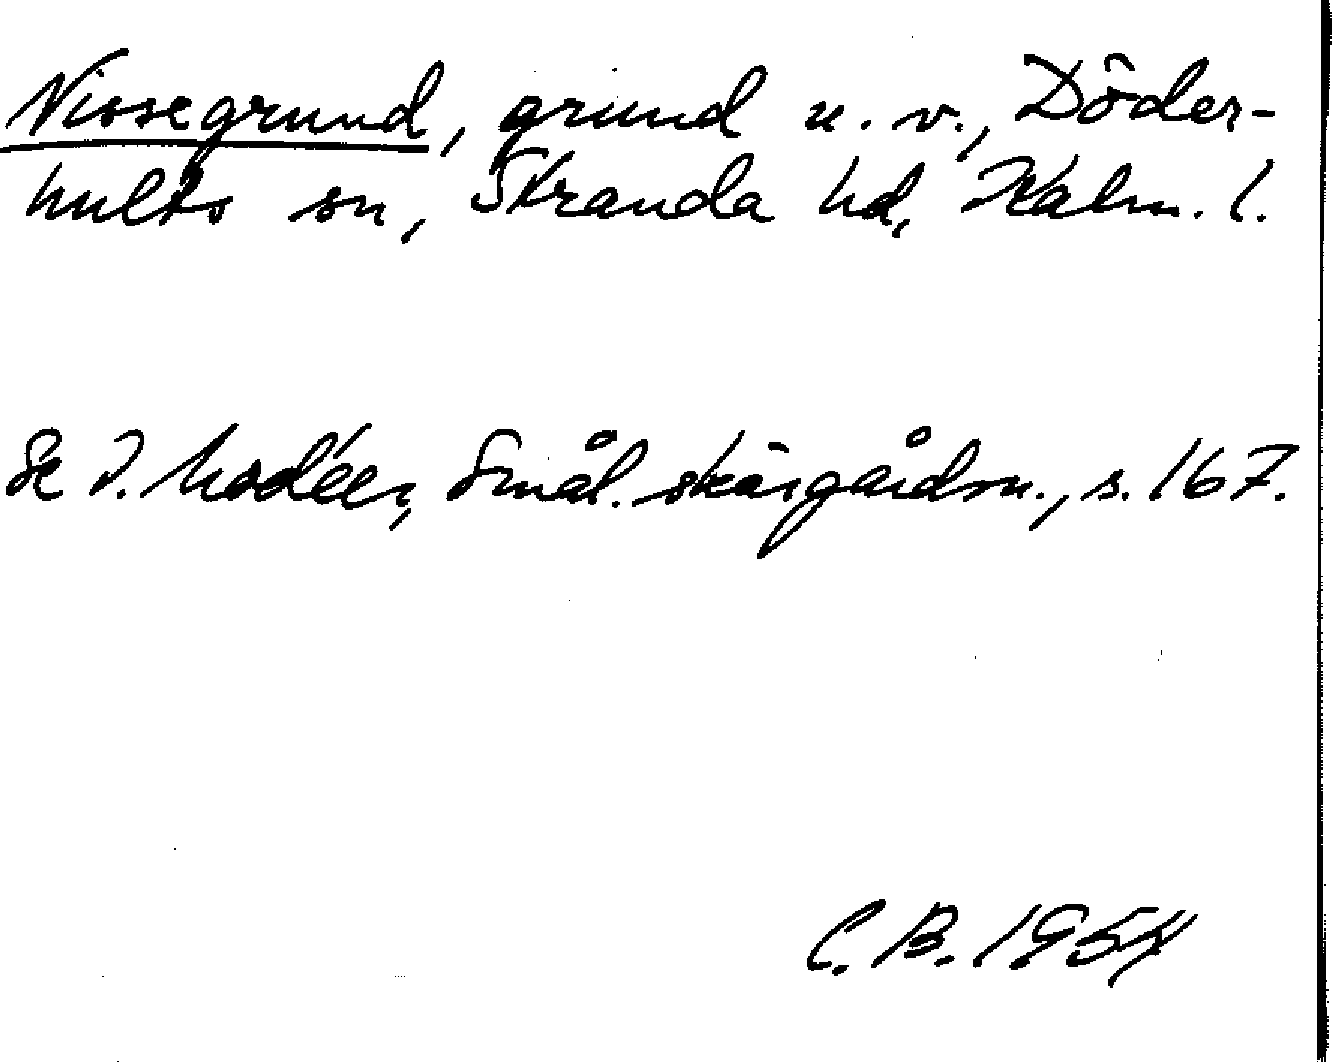 Nissegrund, grund u. v., Döder-
hults sn, Stranda hd, Kalm. l.
Se I. Modéer, Smål. skärgårdsn., s. 167.
C. B. 1954